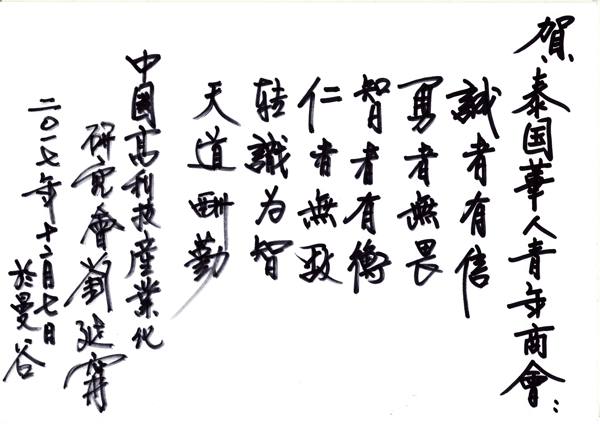 賀泰国華人青年商會：
誠者有信
勇者無畏
智者有衡
仁者無敌
转識为智
天道酬勤
中国高科技産業化
研究會劉延寧
二〇一七年十二月七日
於曼谷